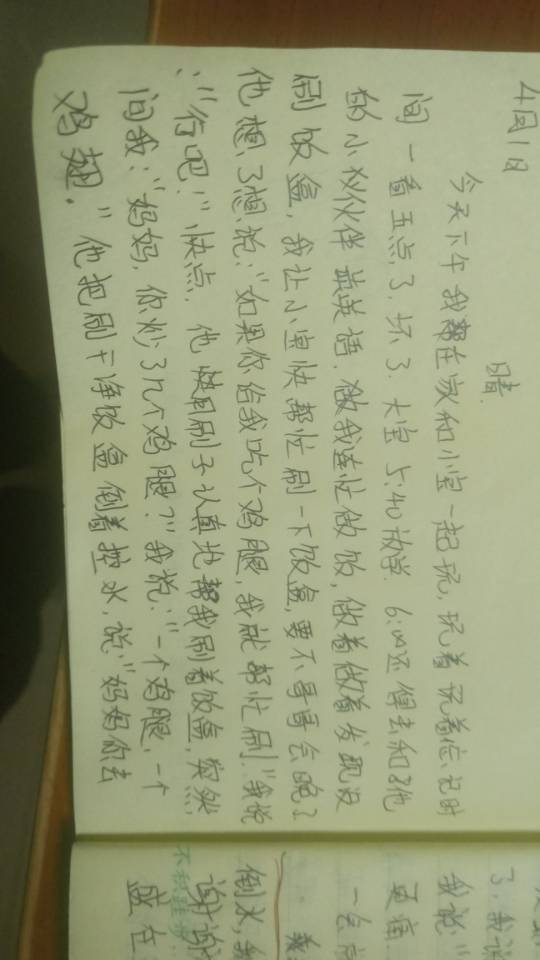 4月1日
晴.
今天下午我都在家和小宝一起玩,玩着玩着忘记时
间 一看五点了,坏了.大宝5:40放学. 6:00还得去和他
的小伙伴 英语. 我连忙做饭,做着做着发现没
刷饭盒,我让小宝快帮忙刷一下饭盒,要不哥哥会晚了
他想了想,说:"如果你给我吃个鸡腿,我就帮忙刷."我说
:"行吧!",快点. 他 用刷子认真地帮我刷着饭盒,突然
问我:"妈妈,你炒了几个鸡腿?"我说:"一个鸡腿,一个
鸡翅."他把刷干净饭盒倒着控水,说:"妈妈你去
倒水,我
谢谢
盛在
了,我说
我说:"
更痛
一会